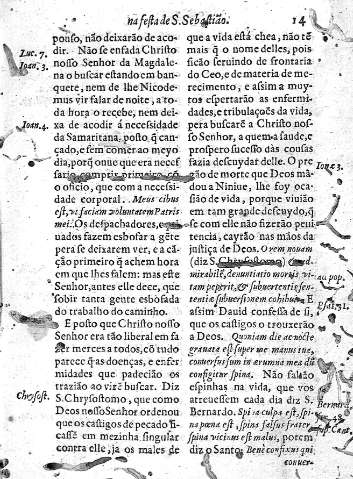 na festa de S. Sebastião. 14
pouso, não deixarão de aco-
dir. Não se enfada Christo
nosso Senhor da Magdale-
na o buscar estando em ban-
quete, nem de lhe Nicode-
mus vir falar de noite, a to-
da hora o recebe, nem dei-
xa de acodir á necessidade
da Samaritana, posto q̃ can-
çado, e sem comer ao meyo
dia, porq̃ onde que era necef
sario comprir primeiro cõ
o officio, que com a necessi-
dade corporal. Meus cibus
est, vt faciam voluntatem Patris
mei. Os despachadores, e
uados fazem esbofar a gẽte
pera se deixarem ver, e a cã
ção primeiro q̃ achem hora
em que lhes falem: mas este
Senhor, antes elle dece, que
sobir tanta gente esbofada
do trabalho do caminho.
E posto que Christo nosso
Senhor era tão liberal em fa
zer merces a todos, cõ tudo
parece q̃ as doenças, e enfer
midades que padecião os
trazião ao virẽ buscar. Diz
S. Chrysostomo, que como
Deos nosso Senhor ordenou
que os castigos de pecado fi
cassẽ em mezinha singular
contra elle, ja os males de
Luc. 7.
Ioan. 3.
Ioan. 4.
Chrisost.
que a vida està chea, não tẽ
mais q̃ o nome delles, pois
ficação seruindo de frontaria
do Ceo, e de materia de me-
recimento, e assim a muy-
tos espertarão as enfermi-
dades, e tribulaçoẽs da vida,
pera buscarẽ a Christo nos-
so Senhor, a quem a saude, e
prospero successo das cousas
fazia descuydar delle. O pre
gão de morte que Deos mã-
dou a Niniue, lhe foy oca-
sião de vida, porque viuião
em tam grande descuydo, q̃
se com elle não fizerão peni-
tencia, cayrão nas mãos da
justiça de Deos. O rem nouam
(diz S. Chrysostomo) & ad-
mirabilẽ, denuntiatio mortis, vi-
tam peperit, & subuertentis sen-
tentia subuersionem cohibuit. E
assim Dauid confessa de si,
que os castigos o trouxerão
a Deos. Quoniam die ac nocte
grauata est super me manus tua,
conuersus sum in arumna mea dũ
configitur spina. Não falão
espinhas na vida, que vos
atrauessem cada dia diz S.
Bernardo. Spina culpa est, spi-
na pœna est, spina falsus frater
spina vicinus est malus, porem
diz o Santo. Bene confixus qui
conuer-
Ionæ 3.
ad pop.
Psal. 31.
Bernard.